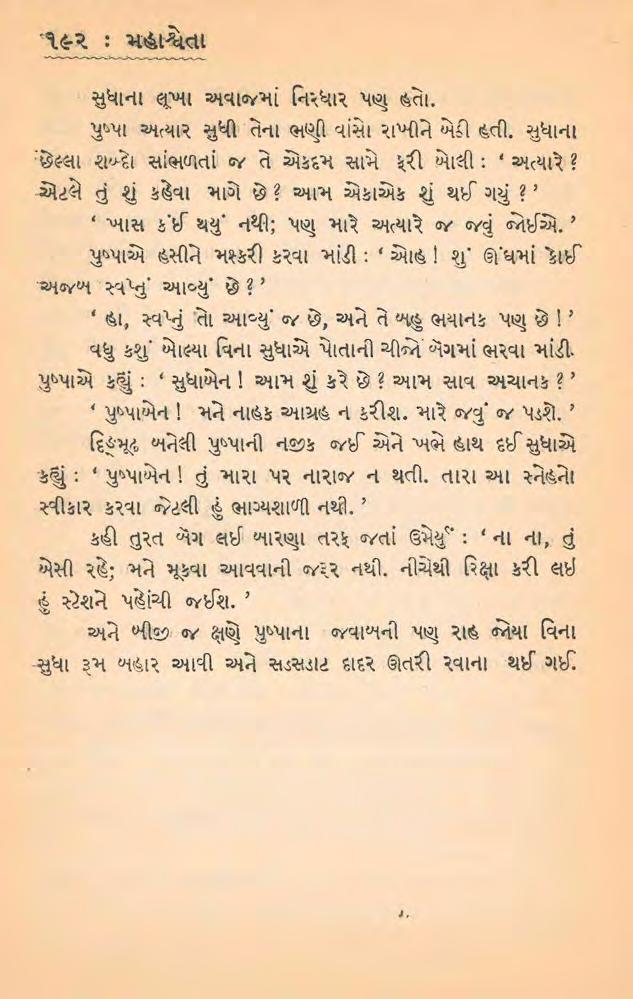 ૧૯૨ : મહાશ્વેતા
સુધાના લૂખા અવાજમાં નિરધાર પણ હતો.
પુષ્પા અત્યાર સુધી તેના ભણી વાંસો રાખીને બેઠી હતી. સુધાના
છેલ્લા શબ્દો સાંભળતાં જ તે એકદમ સામે ફરી બોલી : ‘ અત્યારે ?
એટલે તું શું કહેવા માગે છે ? આમ એકાએક શું થઈ ગયું ? ’
‘ ખાસ કંઈ થયું નથી; પણ મારે અત્યારે જ જવું જોઈએ. ’
પુષ્પાએ હસીને મશ્કરી કરવા માંડી : ‘ ઓહ ! શું ઊંઘમાં કોઈ
અજબ સ્વપ્નું આવ્યું છે ? ’
‘ હા, સ્વપ્નું તો આવ્યું જ છે, અને તે બહુ ભયાનક પણ છે ! ’
વધુ કશું બોલ્યા વિના સુધાએ પોતાની ચીજો બૅગમાં ભરવા માંડી.
પુષ્પાએ કહ્યું : ‘ સુધાબેન ! આમ શું કરે છે ? આમ સાવ અચાનક ? ’
‘ પુષ્પાબેન ! મને નાહક આગ્રહ ન કરીશ. મારે જવું જ પડશે. ’
દિઙ્મૂઢ બનેલી પુષ્પાની નજીક જઈ એને ખભે હાથ દઈ સુધાએ
કહ્યું : ‘ પુષ્પાબેન ! તું મારા પર નારાજ ન થતી. તારા આ સ્નેહનો
સ્વીકાર કરવા જેટલી હું ભાગ્યશાળી નથી. ’
કહી તુરત બૅગ લઈ બારણા તરફ જતાં ઉમેર્યું : ‘ ના ના, તું
બેસી રહે; મને મૂકવા આવવાની જરૂર નથી. નીચેથી રિક્ષા કરી લઇ
હું સ્ટેશને પહોંચી જઈશ. ’
અને બીજી જ ક્ષણે પુષ્પાના જવાબની પણ રાહ જોયા વિના
સુધા રૂમ બહાર આવી અને સડસડાટ દાદર ઊતરી રવાના થઈ ગઈ.